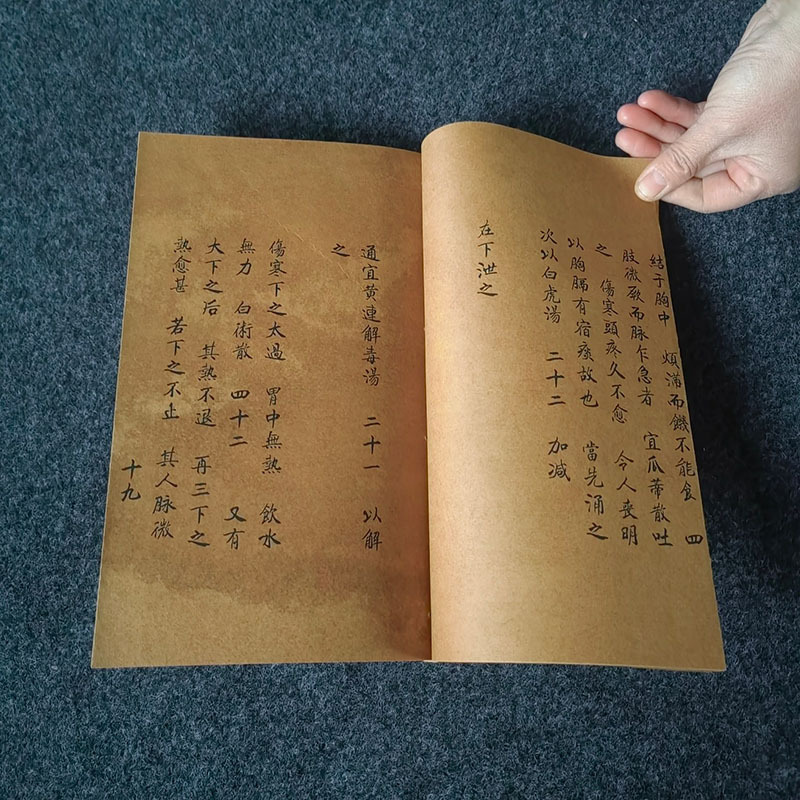 結于胸中 煩滿而饑不能食 四
肢微厥而脉乍急者 宜瓜蒂散吐
之 傷寒頭疼久不愈 令人喪明
以胸膈有宿痰故也 當先涌之
次以白虎湯 二十二 加减
在下泄之
通宜黄連解毒湯 二十一 以解
之
傷寒下之太過 胃中無熱 飲水
無力 白術散 四十二 又有
大下之后 其熱不退 再三下之
熱愈甚 若下之不止 其人脉微
十九